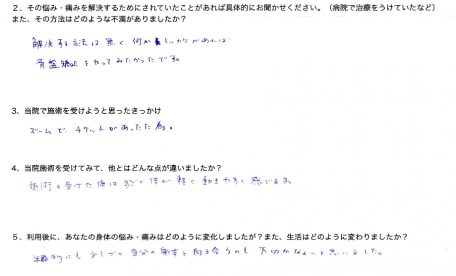 2、その悩み・痛みを解決するためにされていたことがあれば具体的にお聞かせください。（病院で治療をうけていたなど）
また、その方法はどのような不満がありましたか？
解決する方法は無く 何か きっかけがあれば
骨盤矯正をやってみたかったです。
3、当院で施術を受けようと思ったきっかけ
ズームで チケットがあった為。
4、当院施術を受けてみて、他とはどんな点が違いましたか？
施術を受けた後はすごく体が軽く動きやすく感じます。
5、利用後に、あなたの身体の悩み・痛みはどのように変化しましたが？また、生活はどのように変わりましたか？
年齢的にも 少しずつ 自分の 身体と向き合うのも 大切かな〜と思いました。